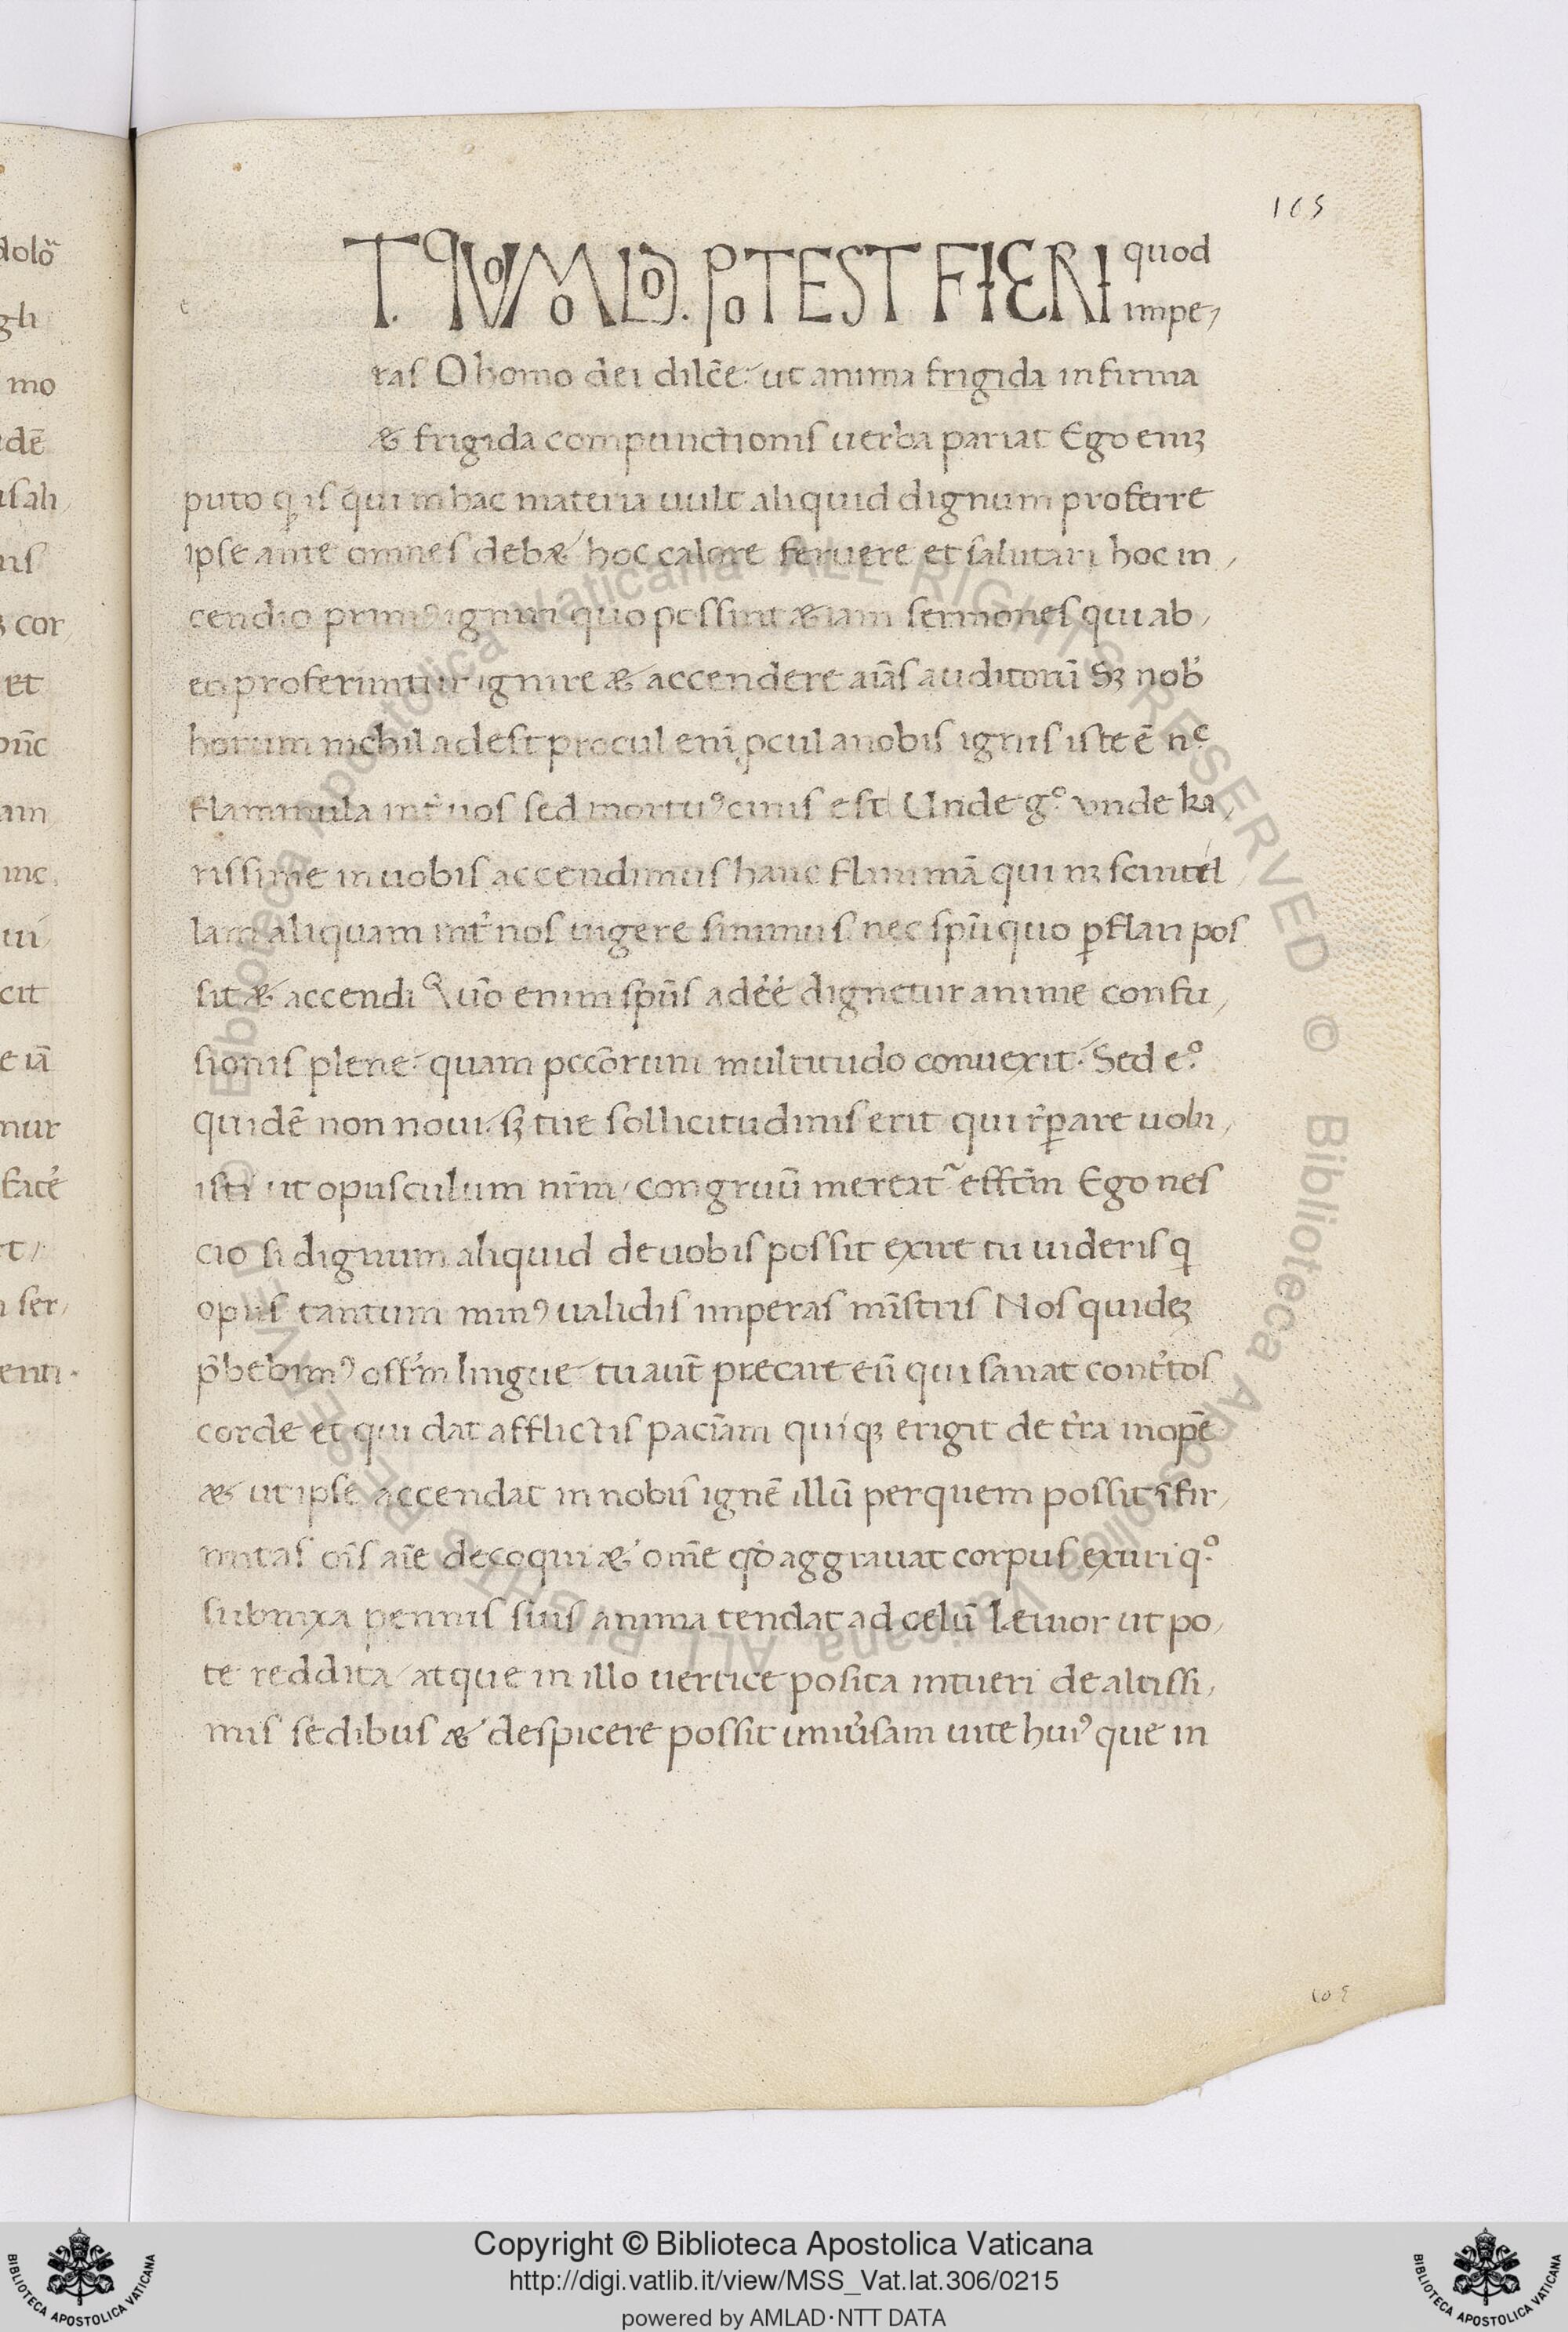 105
T. QVOMODO. POTEST FIERI quod
impe,
ras O homo dei dilc̄e ut anima frigida infirma
& frigida compunctionis uerba pariat Ego eniꝫ
puto ꝙ is qui in hac materia uult aliquid dignum proferre
ipse ante omnes deb& hoc calore feruere et salutari hoc in,
cendio primꝰ igniri quo possint &iam sermones qui ab,
eo proferuntur ignire & accendere aīas auditorū Sꝫ nob̓
horum nichil adest procul enī ꝓcul a nobis ignis iste ē nᵉ
flammula int̓ uos sed mortuꝰ cinis est Unde g° vnde ka,
rissime in uobis accendimus hanc flammā qui nꝫ scintil,
lam aliquam int̓ nos uigere sinimus nec spm̄ quo ꝑflari pos
sit & accendi Quō enim spūs adēē dignetur anime confu,
sionis plene quam pccōrum multitudo conuexit. Sed e°
quidē non noui sꝫ tue sollicitudinis erit qui r̄ꝑare uolu,
isti ut opusculum nr̄m congruū mereat᷑ effcm̄ Ego nes
cio si dignum aliquid de uobis possit exire tu uideris ꝙ
opus tantum minꝰ ualidis imperas mīstris Nos quideꝫ
p̄bebimꝰ offm̄ lingue tu aut̄ precare eū qui sanat cont̓tos
corde et qui dat afflictis pacīam qui qꝫ erigit de t̓ra inopē
& ut ipse accendat in nobis ignē illū per quem possit īfir,
mitas oīs aīe decoqui & om̄e qd̄ aggrauat corpus exuri q°
subnixa pennis suis anima tendat ad celū leuior ut po,
te reddita atque in illo uertice posita intueri de altissi,
mis sedibus & despicere possit uniu̓sam uite huiꝰ que in
105
Copyright © Biblioteca Apostolica Vaticana
http://digi.vatlib.it/view/MSS_Vat.lat.306/0215
powered by AMLAD·NTT DATA